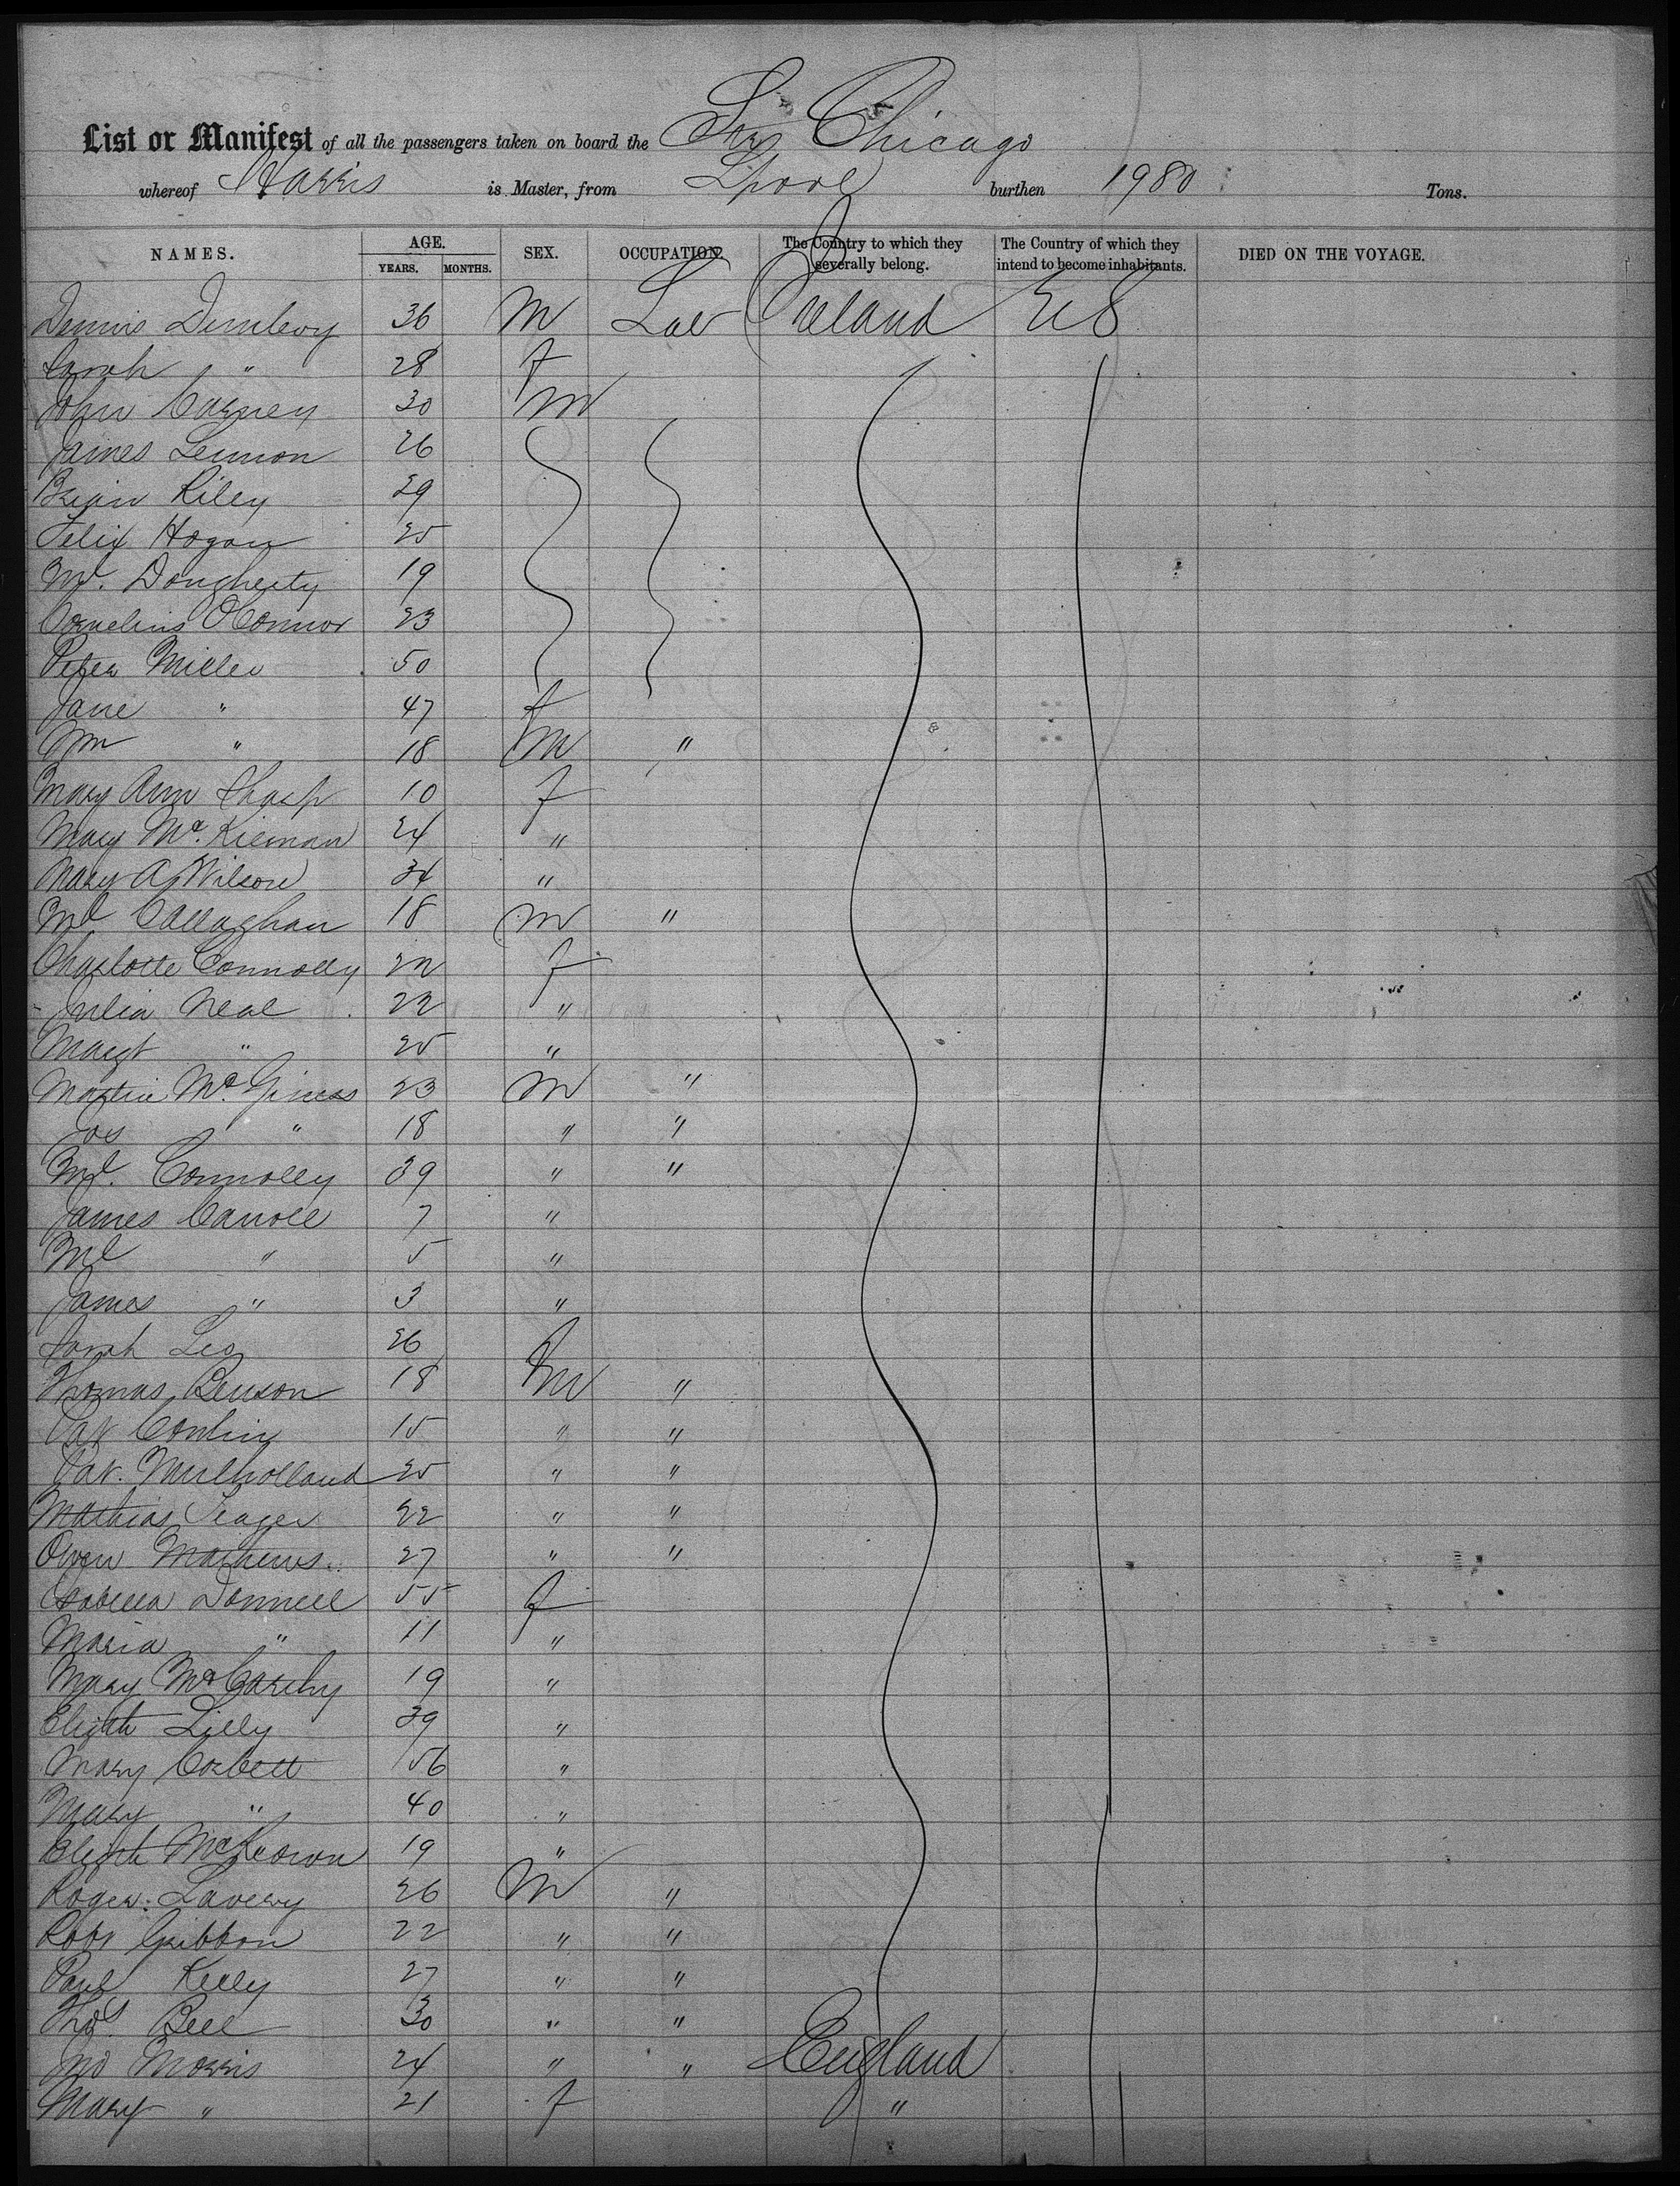 List or Manifest of all the passengers taken on board the Chicago
whereof Harris is Master, from Lpool burthen 1980 Tons.
NAMES. AGE. YEARS. MONTHS. SEX. OCCUPATION. The Country to which they severally belong. The Country of which they intend to become inhabitants. DIED ON THE VOYAGE.
Dennis 36 M Lab Ireland US
Sarah " 28 f
John Carney 30 M
James Lennon 26
Brian Riley 29
Felix Hogan 25
Ml. Dougherty 19
Cornelius OConnor 23
Peter Miller 50
Jane " 47 f
Wm " 18 M "
Mary Ann Sharp 10 f
Mary Mc. Kiernan 24 "
Mary A Wilson 34 "
Ml Callaghan 18 M "
Charlotte Connolly 22 f
Julia Neal 22 "
Margt " 25 "
Martin Mc. Giness 23 M "
Jas " 18 " "
Ml. Connolly 39 " "
James Carroll 7 "
Ml " 5 "
James " 3 "
Sarah Leo 26
Thomas Benson 18 M "
Pat Conlin 15 " "
Pat. Mulholland 25 " "
Mathias 22 " "
Owen Mathews. 27 " "
Isabella Donnell 55 f
Maria " 11 "
Mary McCarthy 19 "
Elizth Lilly 39 "
Mary Corbett 56 "
Mary " 40 "
Elizth McKeown 19 "
Roger Lavery 26 M "
Robt Gribbon 22 " "
Paul Kelly 27 " "
Thos. Bell 30 " "
Jno Morris 24 " " England
Mary " 21 f "